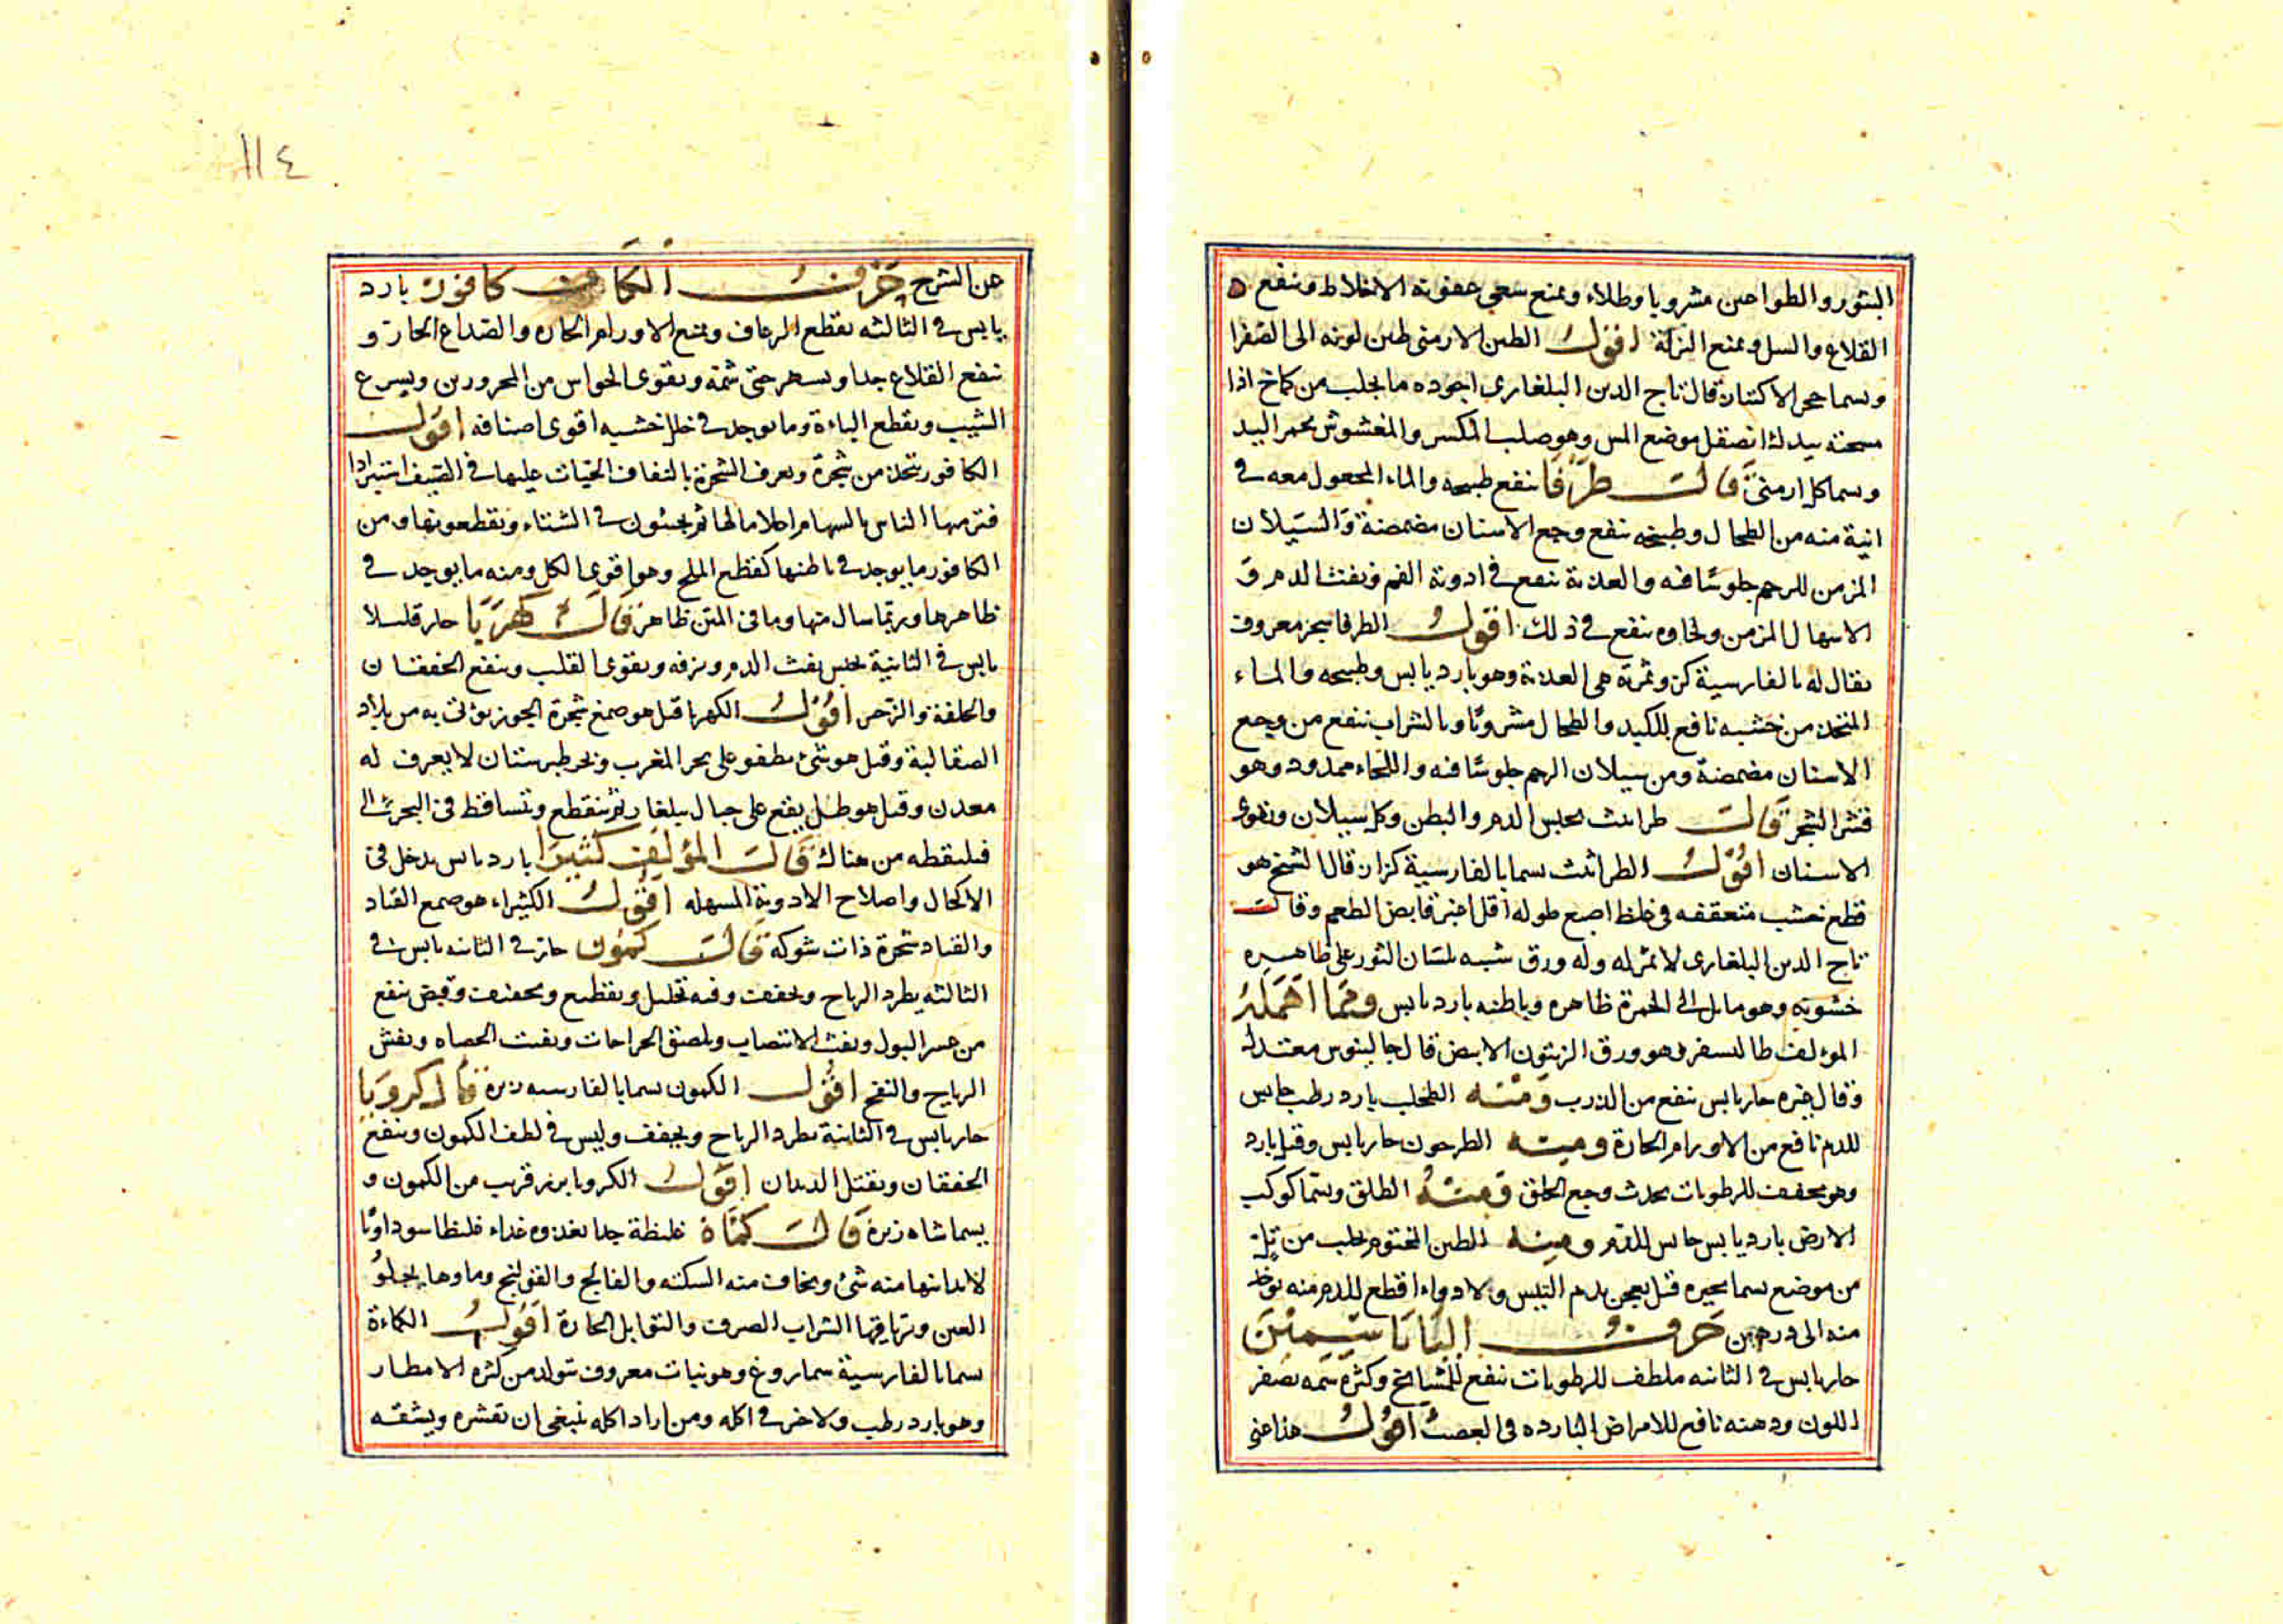 البثور والطواعين مشروبا وطلاء ويمنع سعى عفونة الاخلاط وينفع
القلاع والسل ويمنع النزلة اقول الطين الارمنى طين لونه الى الصفرا
ويسما حجر قال تاج الدين البلغارى اجوده ما يجلب من كماخ اذا
بيدك انصقل موضع المس وهو صلب المكسر والمغشوش يحمر اليد
ويسما كل ارمنى قال طرفا ينفع طبيخه والماء المجعول معه فى
انية منه من الطحال وطبيخه ينفع وجع الاسنان مضمضة والسيلان
المزمن للرحم جلوسا فيه والعذبة تنفع فى ادوية الفم ونفث الدم و
الاسهال المزمن ولحاوه ينفع فى ذلك اقول الطرفا شجر معروف
يقال له بالفارسية كز وثمرته هى العذبة وهو بارد يابس وطبيخه والماء
المتخذ من خشبه نافع للكبد والطحال مشروبا وبالشراب ينفع من وجع
الاسنان مضمضة ومن سيلان الرحم جلوسا فيه واللحاء ممدود وهو
قشر الشجر قال طراثيث يحبس الدم والبطن وكل سيلان ويقوى
الاسنان اقول الطراثيث يسما بالفارسية قال الشيخ هو
قطع خشب متعقفه فى غلظ اصبع طوله اقل اغبر قابض الطعم وقال
تاج الدين البلغارى لا ثمر له وله ورق شبيه بلسان الثور على ظاهره
خشونة وهو مايل الى الحمرة ظاهره وباطنه بارد يابس ومما اهمله
المولف طاليسفر وهو ورق الزيتون الابيض قال جالينوس معتدل
وقال غيره حار يابس ينفع من الذرب ومنه الطحلب بارد رطب حابس
للدم نافع من الاورام الحارة ومنه الطرخون حار يابس وقيل بارد
وهو مجفف للرطوبات يحدث وجع الحلق ومنه الطلق ويسما كوكب
الارض بارد يابس حابس للدم ومنه الطين المختوم يجلب من تل
من موضع يسما بحيره قيل يعجن بدم التيس ولا دواء اقطع للدم منه يوخذ
منه الى درهمين حرف اليا ياسمين
حار يابس فى الثانيه ملطف للرطوبات ينفع للمشايخ وكثرة شمه يصفر
اللون ودهنه نافع للامراض البارده فى العصب اقول هذا غنى
١١٤
عن الشرح حرف الكاف كافور بارد
يابس فى الثالثه يقطع الرعاف ويمنع الاورام الحاره والصداع الحار و
ينفع القلاع جدا ويسهر حتى شمه ويقوى الحواس من المحرورين ويسرع
الشيب ويقطع الباءة وما يوجد فى خلل خشبه اقوى اصنافه اقول
الكافور يتخذ من شجرة ويعرف الشجرة بالتفاف الحيات عليها فى الصيف استبرادا
فترميها الناس بالسهام اعلاما لها ثم يجيئون فى الشتاء ويقطعونها ومن
الكافور ما يوجد فى باطنها كقطع الملح وهو اقوى الكل ومنه ما يوجد فى
ظاهرها وربما سال منها وما فى المتن ظاهر قال كهربا حار قليلا
يابس فى الثانية يحبس نفث الدم ونزفه ويقوى القلب وينفع الخفقان
والخلفة والزحير اقول الكهربا قيل هو صمغ شجرة الجوز يؤتى به من بلاد
الصقالبة وقيل هو شئ يطفو على بحر المغرب وبحر طبرستان لا يعرف له
معدن وقيل هو طل يقع على جبال بلغار ثم ينقطع ويتساقط فى البحر
فيلتقطه من هناك قال المؤلف كثيرا بارد يابس يدخل فى
الاكحال واصلاح الادوية المسهله اقول الكثيراء هو صمغ القتاد
والقتاد شجرة ذات شوكة قال كمون حار فى الثانيه يابس فى
الثالثه يطرد الرياح ويجفف وفيه تحليل وتقطيع وتجفيف وقبض ينفع
من عسر البول ونفس الانتصاب ويلصق الجراحات ويفتت الحصاه ويفش
الرياح والنفخ اقول الكمون يسما بالفارسيه زيره قال كرويا
حار يابس فى الثانية يطرد الرياح ويجفف وليس فى لطف الكمون وينفع
الخفقان ويقتل الديدان اقول الكرويا بزر قريب من الكمون و
يسما شاه زيره قال كماة غليظة جدا يغذوه غذاء غليظا سوداويا
لا يدانيها منه شئ ويخاف منه السكته والفالج والقولنج وماوها يجلو
العين وترياقها الشراب الصرف والتوابل الحارة اقول الكماءة
يسما بالفارسية سماروغ وهو نبات معروف يتولد من كثرة الامطار
وهو بارد رطب ولا خير فى اكله ومن اراد اكله ينبغى ان يقشره ويشقه